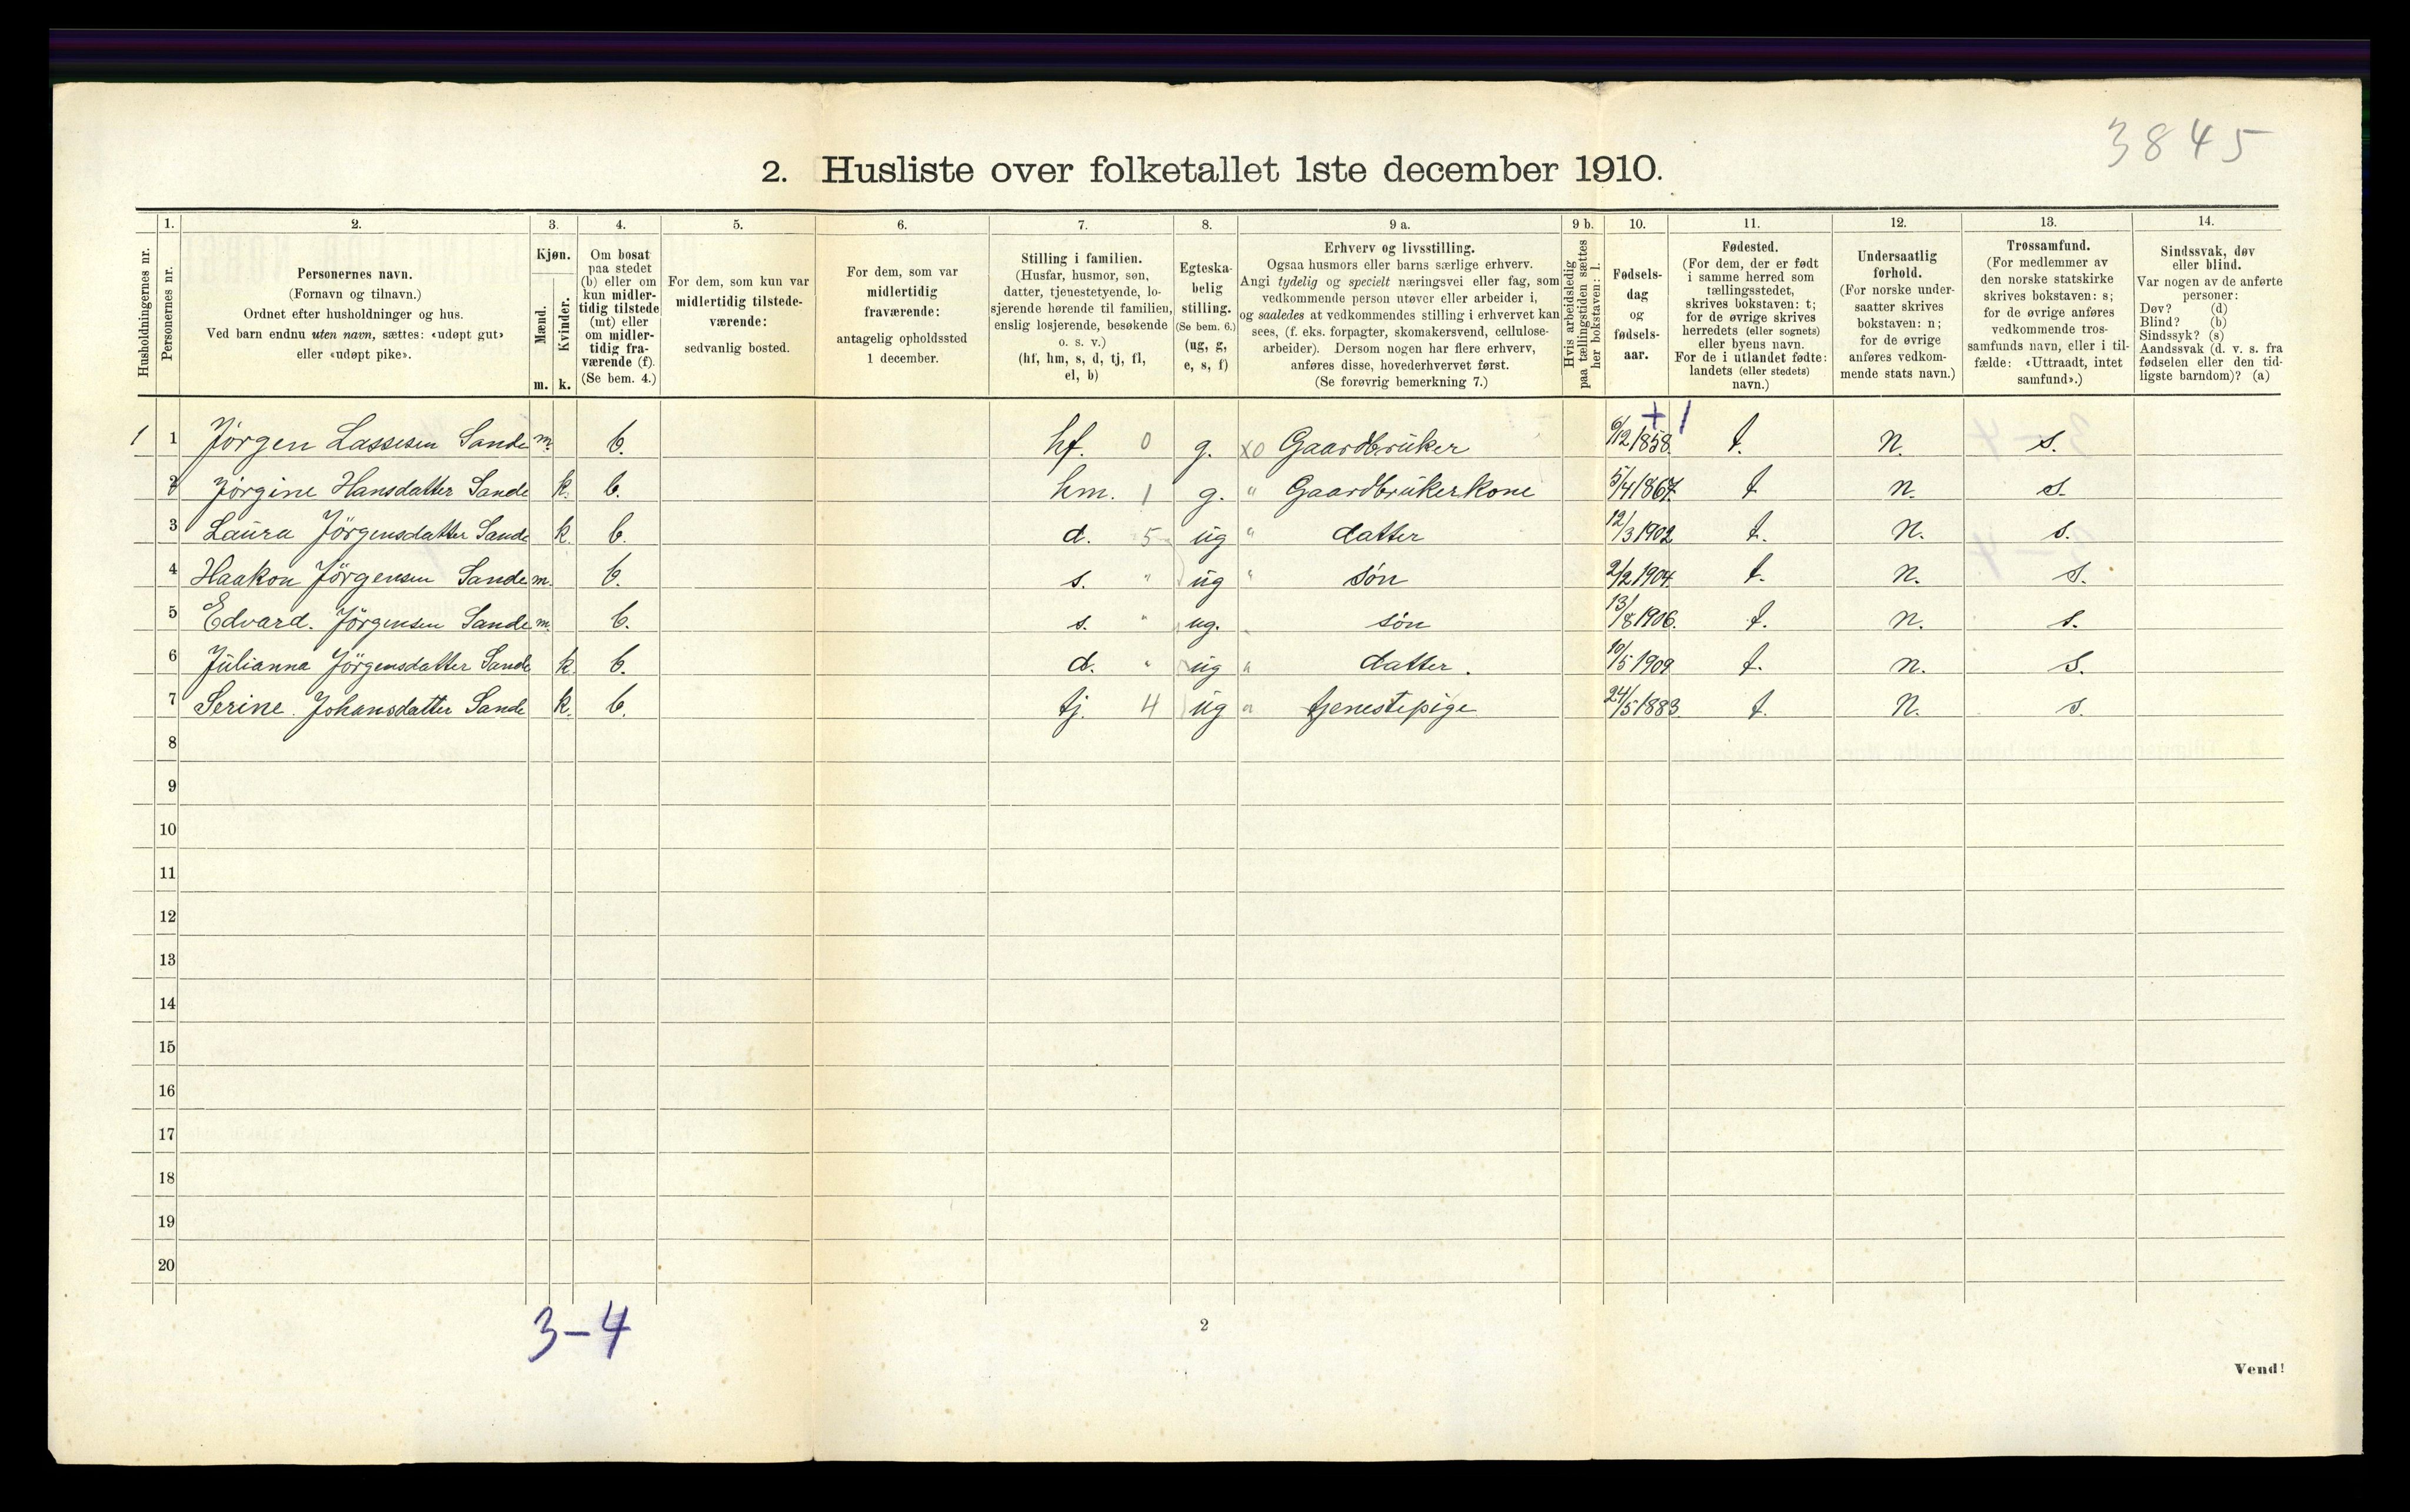 3845
2. Husliste over folketallet 1ste december 1910.
Husholdningernes nr.
1.
Personernes nr.
2.
Personernes navn.
(Fornavn og tilnavn.)
Ordnet efter husholdninger og hus.
Ved barn endnu uten navn, sættes: «udøpt gut»
eller «udøpt pike».
3.
Kjøn.
Mænd.
Kvinder.
m. k.
4.
Om bosat
paa stedet
(b) eller om
kun midler-
tidig tilstede
(mt) eller
om midler-
tidig fra-
værende (f).
(Se bem. 4.)
5.
For dem, som kun var
midlertidig tilstede-
værende:
sedvanlig bosted.
6.
For dem, som var
midlertidig
fraværende:
antagelig opholdssted
1 december.
7.
Stilling i familien.
(Husfar, husmor, søn,
datter, tjenestetyende, lo-
sjerende hørende til familien,
enslig losjerende, besøkende
o. s. v.)
(hf, hm, s, d, tj, fl,
el, b)
8.
Egteska-
belig
stilling.
(Se bem. 6.)
(ug, g,
e, s, f)
9 a.
Erhverv og livsstilling.
Ogsaa husmors eller barns særlige erhverv.
Angi tydelig og specielt næringsvei eller fag, som
vedkommende person utøver eller arbeider i,
og saaledes at vedkommendes stilling i erhvervet kan
sees, (f. eks. forpagter, skomakersvend, cellulose-
arbeider). Dersom nogen har flere erhverv,
anføres disse, hovederhvervet først.
(Se forøvrig bemerkning 7.)
9 b.
Hvis arbeidsledig
paa tællingstiden sættes
her bokstaven: l.
10.
Fødsels-
dag
og
fødsels-
aar.
11.
Fødested.
(For dem, der er født
i samme herred som
tællingsstedet,
skrives bokstaven: t;
for de øvrige skrives
herredets (eller sognets)
eller byens navn.
For de i utlandet fødte:
landets (eller stedets)
navn.)
12.
Undersaatlig
forhold.
(For norske under-
saatter skrives
bokstaven: n;
for de øvrige
anføres vedkom-
mende stats navn.)
13.
Trossamfund.
(For medlemmer av
den norske statskirke
skrives bokstaven: s;
for de øvrige anføres
vedkommende tros-
samfunds navn, eller i til-
fælde: «Uttraadt, intet
samfund».)
14.
Sindssvak, døv
eller blind.
Var nogen av de anførte
personer:
Døv? (d)
Blind? (b)
Sindssyk? (s)
Aandssvak (d. v. s. fra
fødselen eller den tid-
ligste barndom)? (a)
+1
1 1 Jørgen Lassesen Sande m. b. hf. 0 g. xo Gaardbrüker 6/12 1858. t. n. s.
2 Jørgine Hansdatter Sande k. b. hm. 1 g. " Gaardbrükerkone 5/4 1867. t n. s.
3 Laüra Jörgensdatter Sande k. b. d. 5 üg " datter 12/3 1902 t. n. s.
4 Haakon Jörgensen Sande m. b. s. " üg " søn 2/2 1904. t. n. s.
5 Edvard. Jörgensen Sande m. b. s. " ug. " søn 13/8 1906. t. n. s.
6 Jülianna Jörgensdatter Sande k. b. d. " üg " datter. 10/5 1909 t. n. s.
7 Serine Johansdatter Sande k. b. tj. 4 üg " tjenestepige 24/5 1883. t. n. s.
8
9
10
11
12
13
14
15
16
17
18
19
20
3-4
2
Vend!